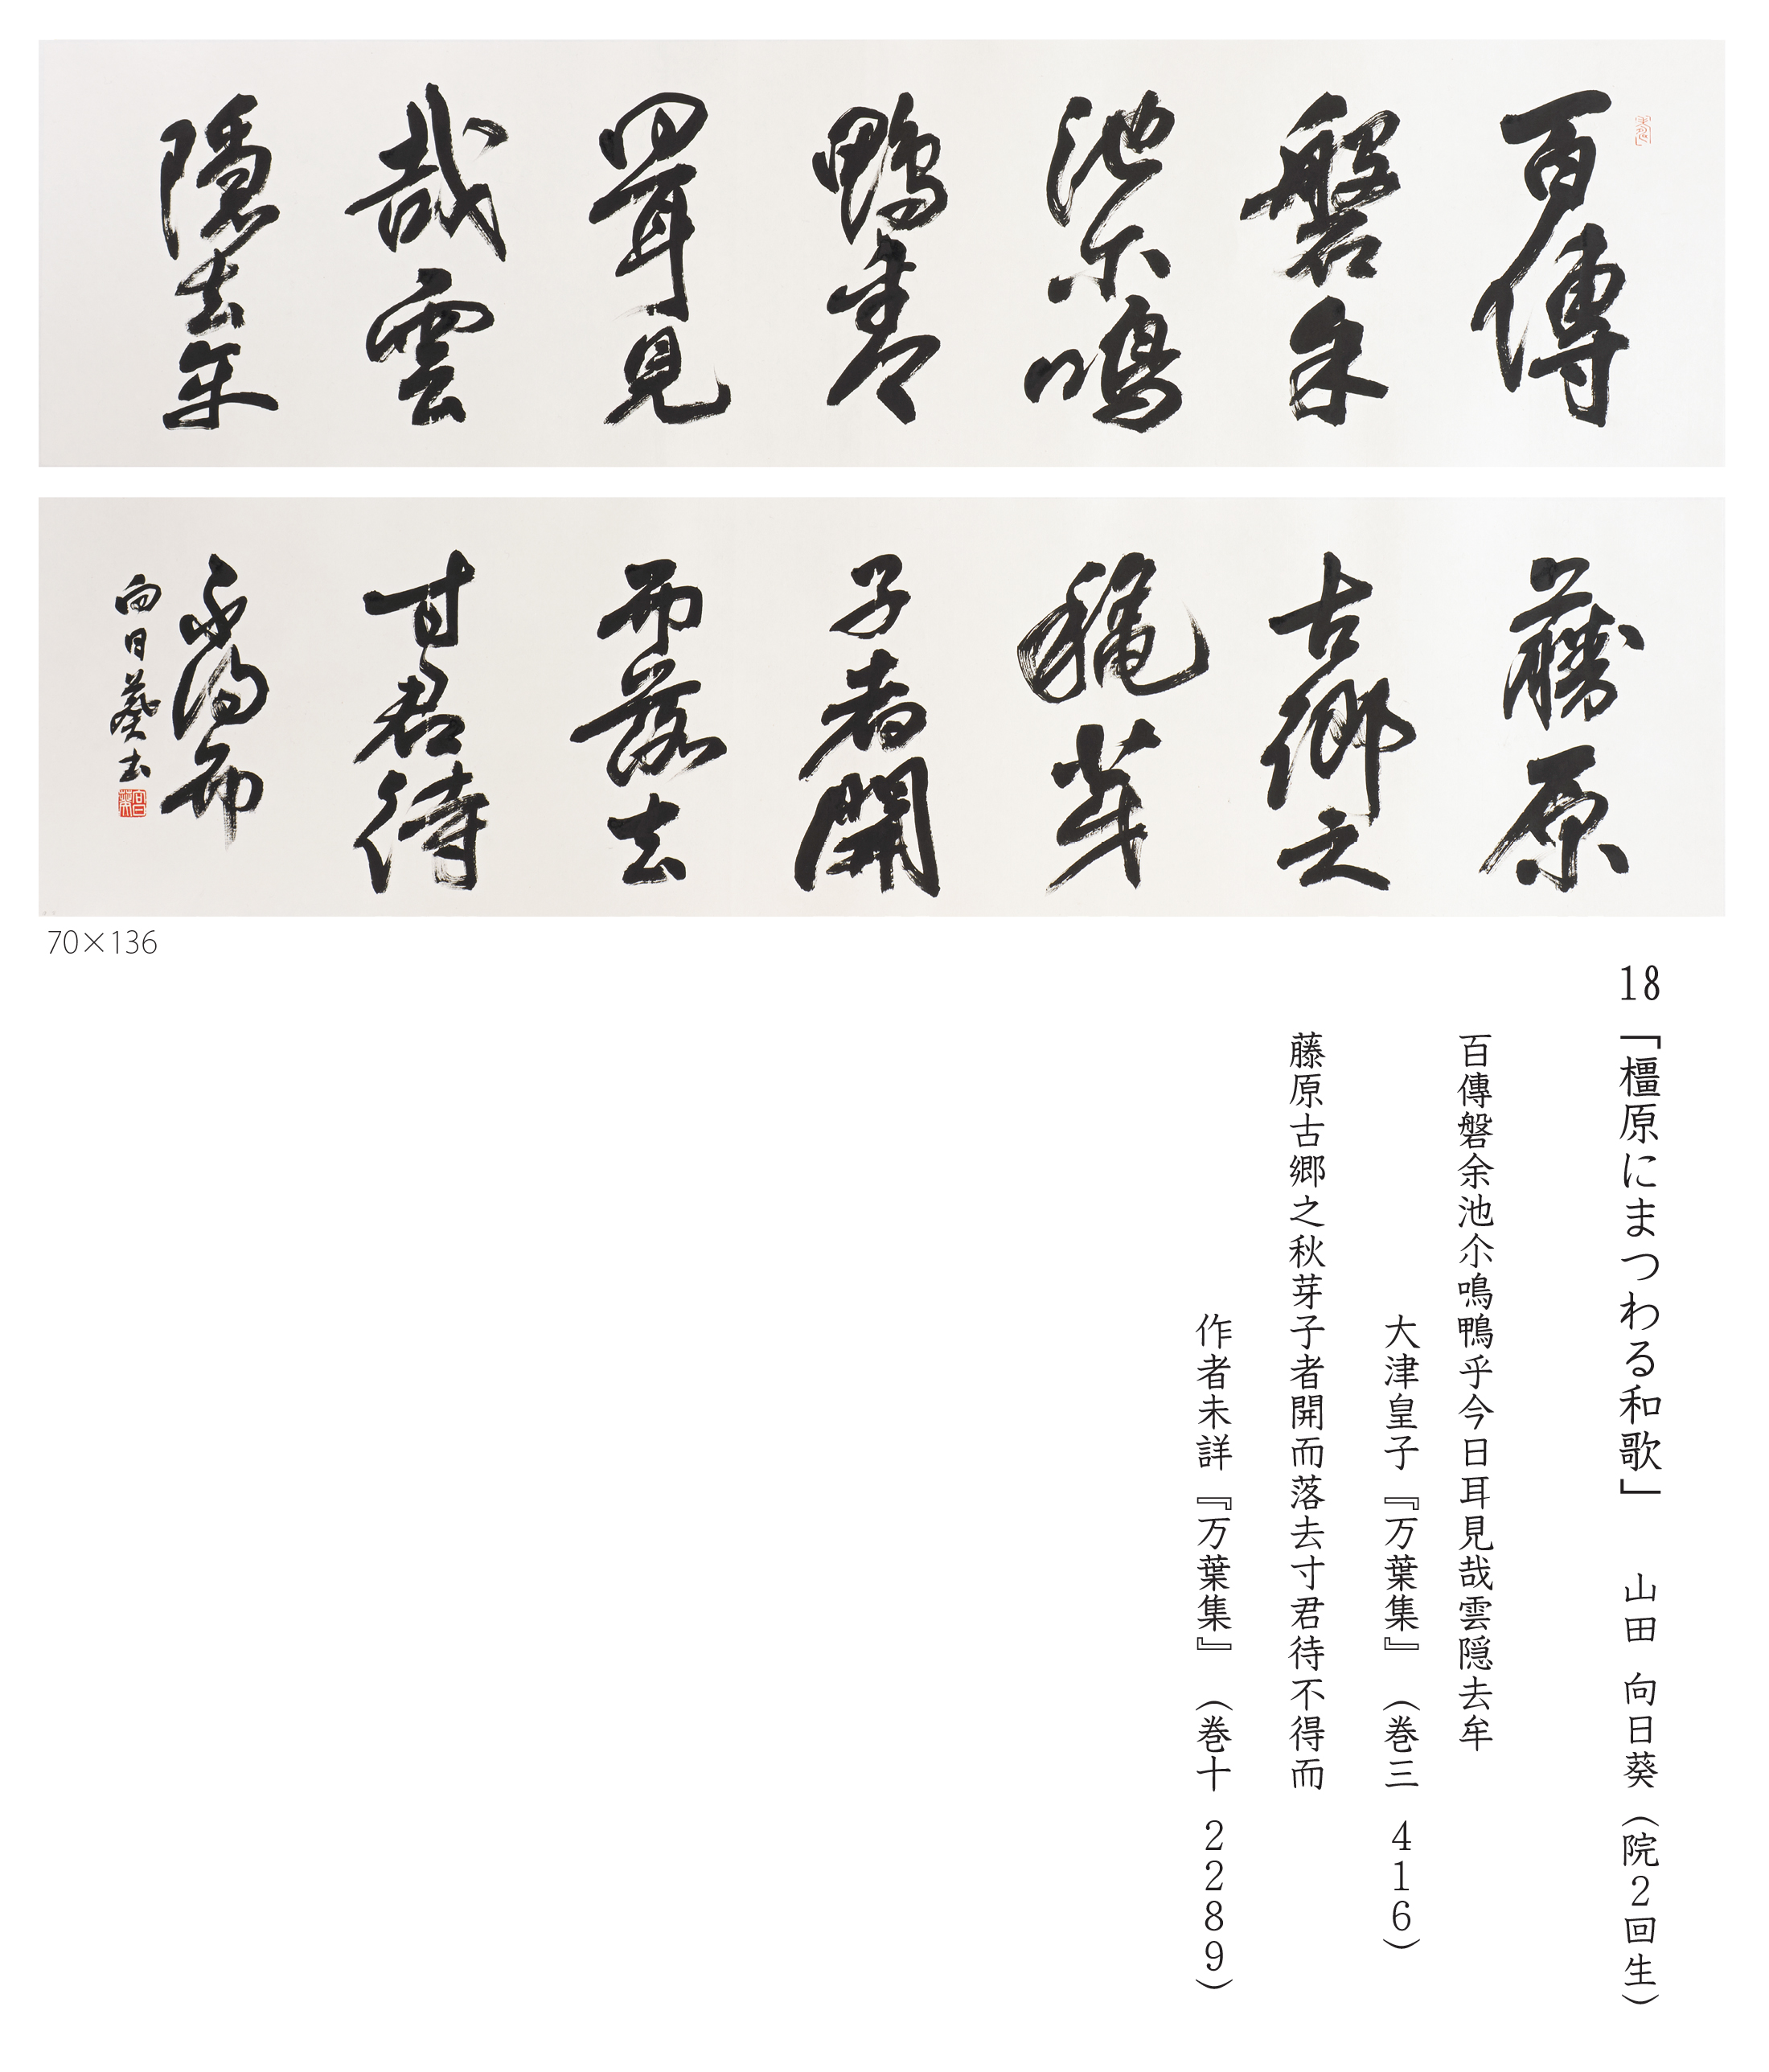 百傳
磐余
池尒鳴
鴨乎今
日耳見
哉雲
隠去牟
藤原
古郷之
秋芽
子者開
而落去
寸君待
不得而
向日葵書
70×136
18「橿原にまつわる和歌」 山田 向日葵（院2回生）
百傳磐余池尒鳴鴨乎今日耳見哉雲隠去牟
大津皇子『万葉集』（巻三 416）
藤原古郷之秋芽子者開而落去寸君待不得而
作者未詳『万葉集』（巻十 2289）